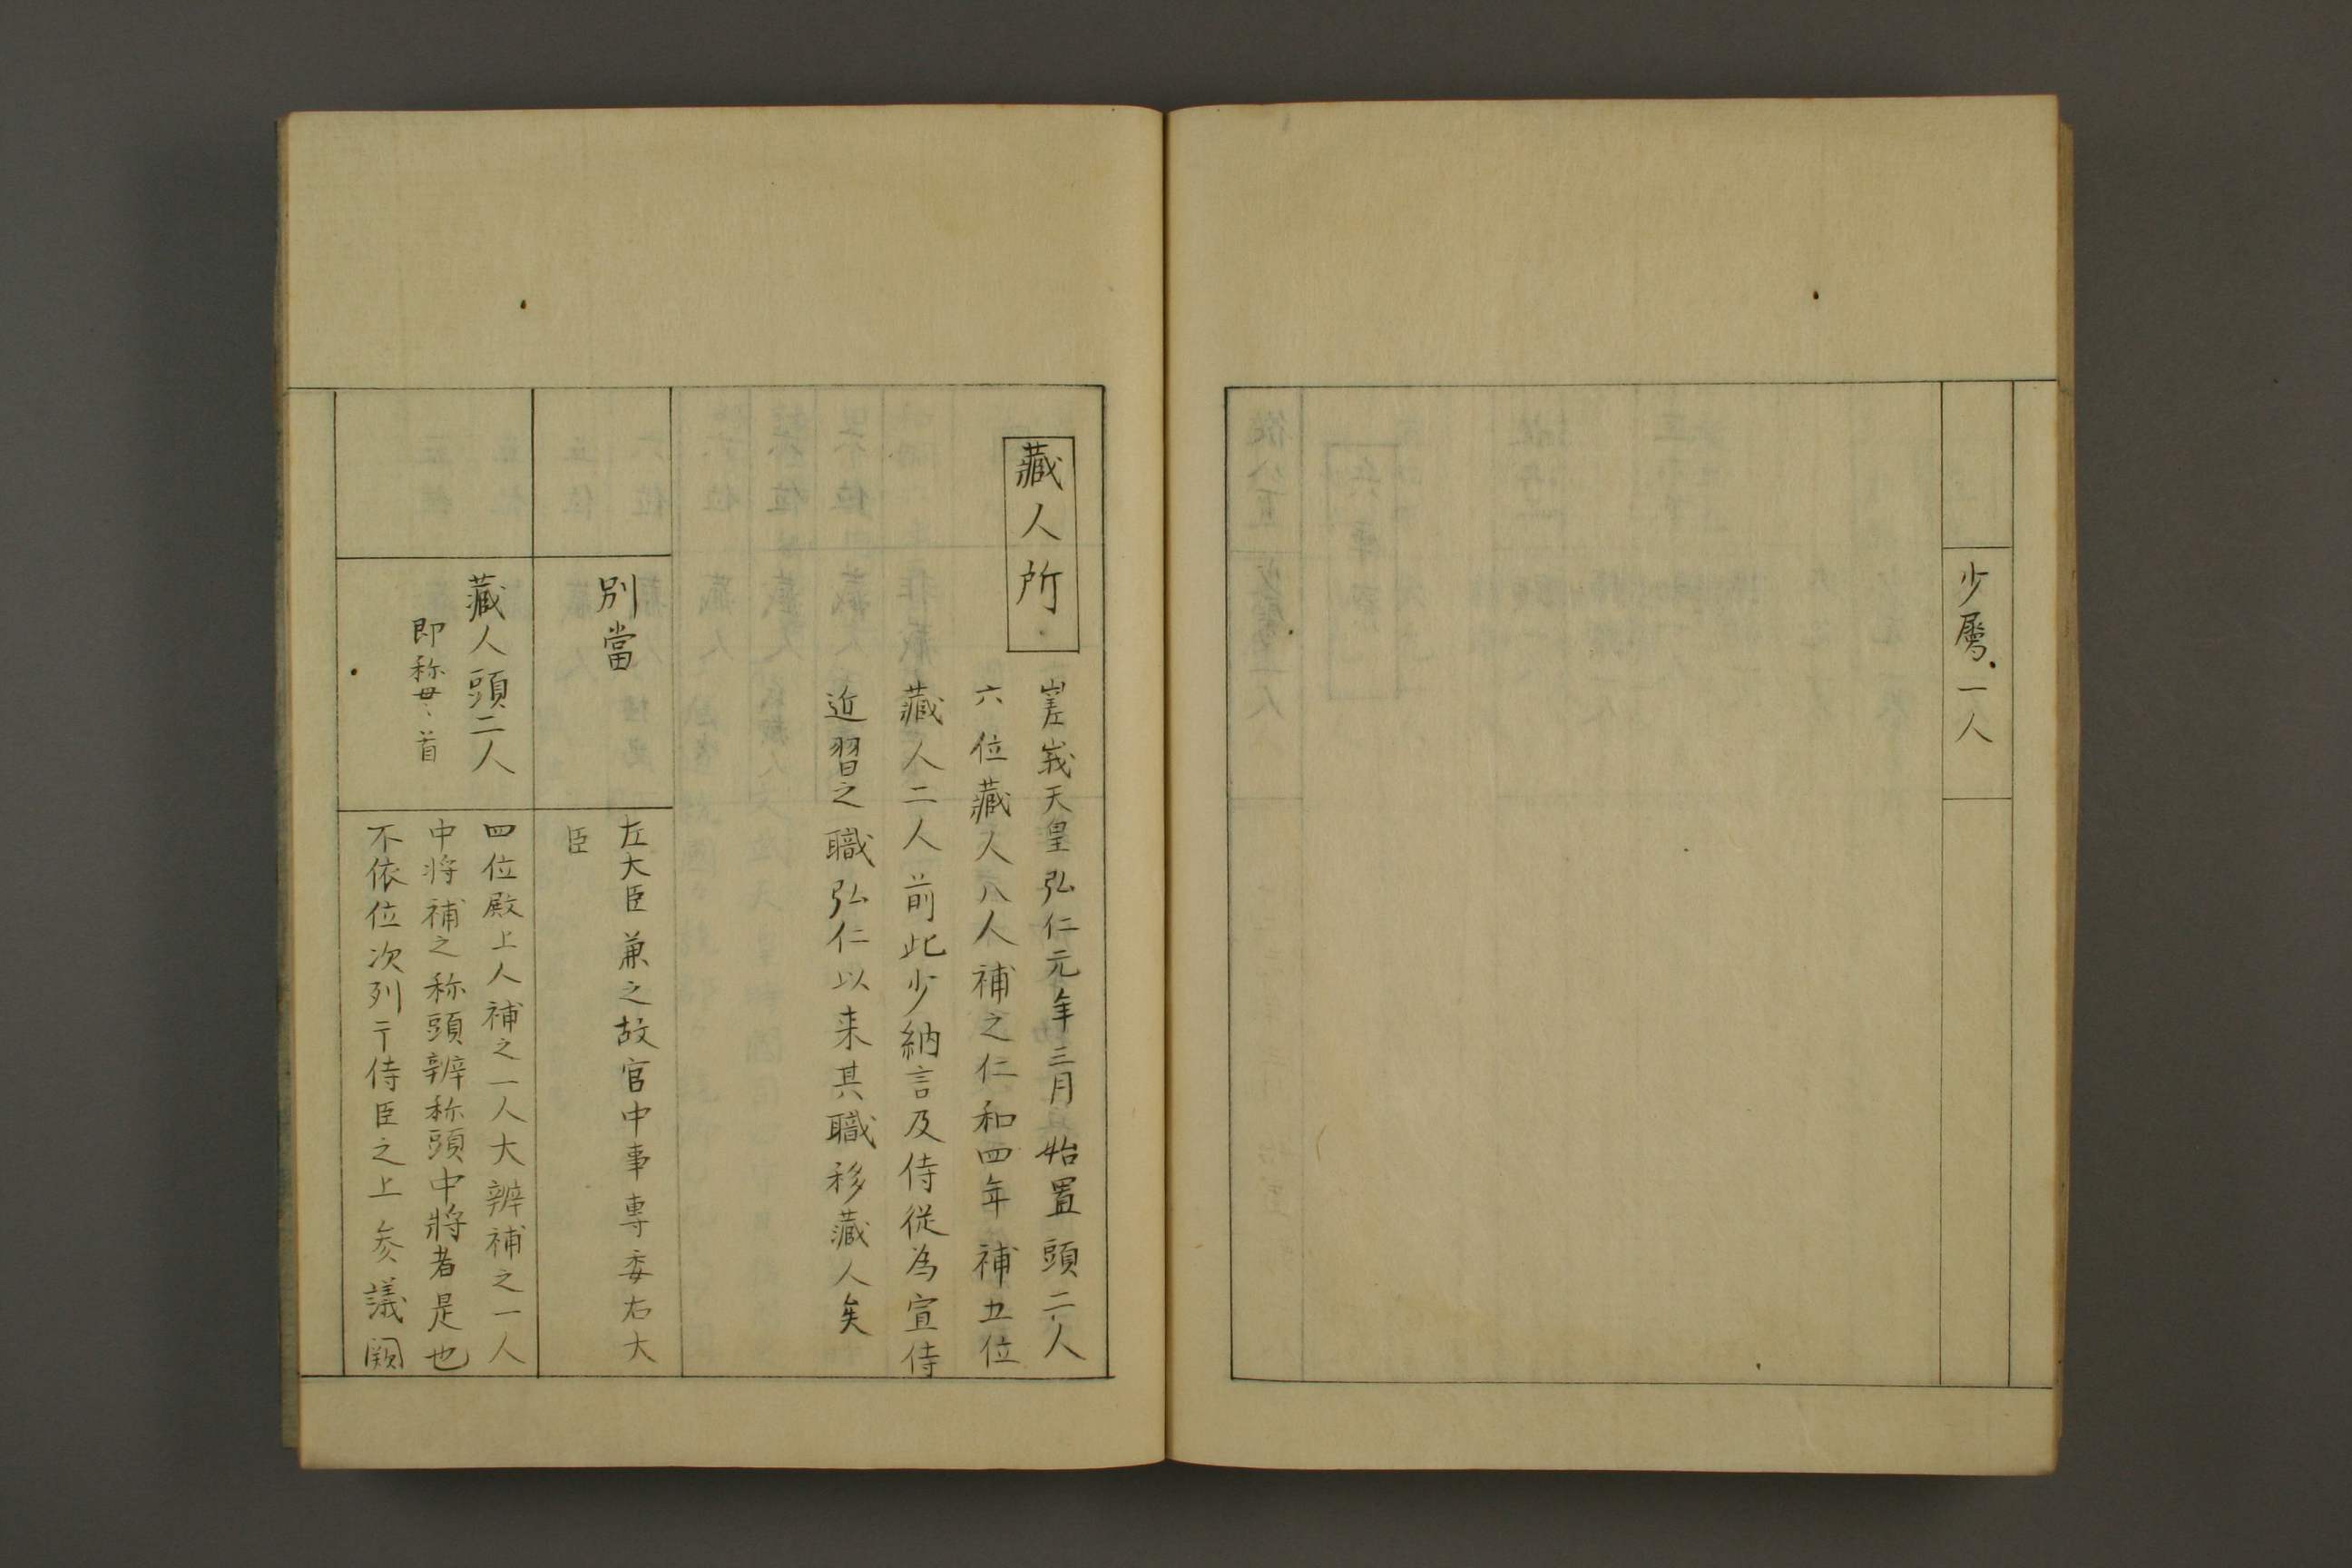 少属一人
藏人所
嵯峩天皇弘仁元年三月始置頭二人
六位藏人八人補之仁和四年補五位
藏人二人前此少納言及侍従為宣侍
近習之職弘仁以来其職移藏人矣
別當
左大臣兼之故官中事專委右大
臣
藏人頭二人
即称
首
四位殿上人補之一人大辨補之一人
中将補之称頭辨称頭中將者是也
不依位次列亍侍臣之上参議闕